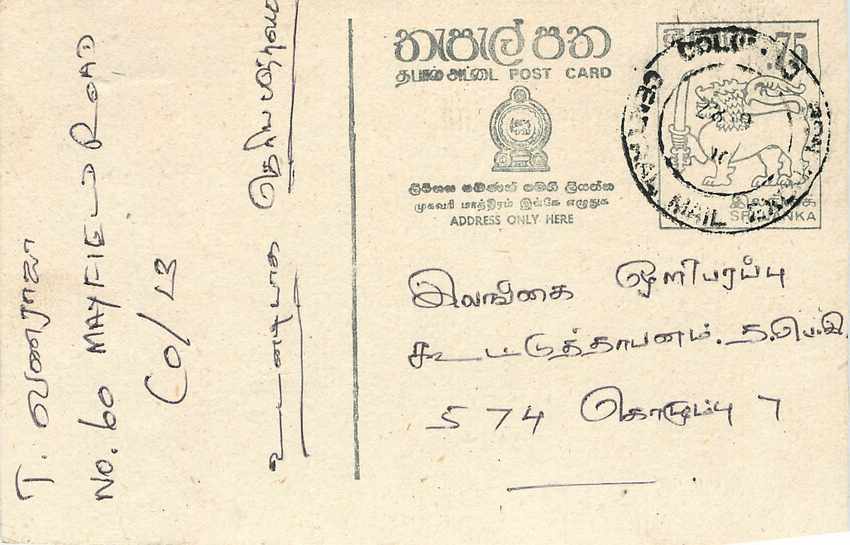 තැපැල් පත
தபால் அட்டை POST CARD
ලිපිනය පමණක් මෙහි ලියන්න
முகவரி மாத்திரம் இங்கே எழுதுக
ADDRESS ONLY HERE
75
இலங்கை
SRI LANKA
COLOMBO
CENTRAL MAIL
இலங்கை ஒளிபரப்பு
கூட்டுத்தாபனம். த.பெ.இ
574 கொழும்பு 7
உடனடியாக தெரிய
T. வணராஜா
NO. 60 MAYFIELD ROAD
CO/13